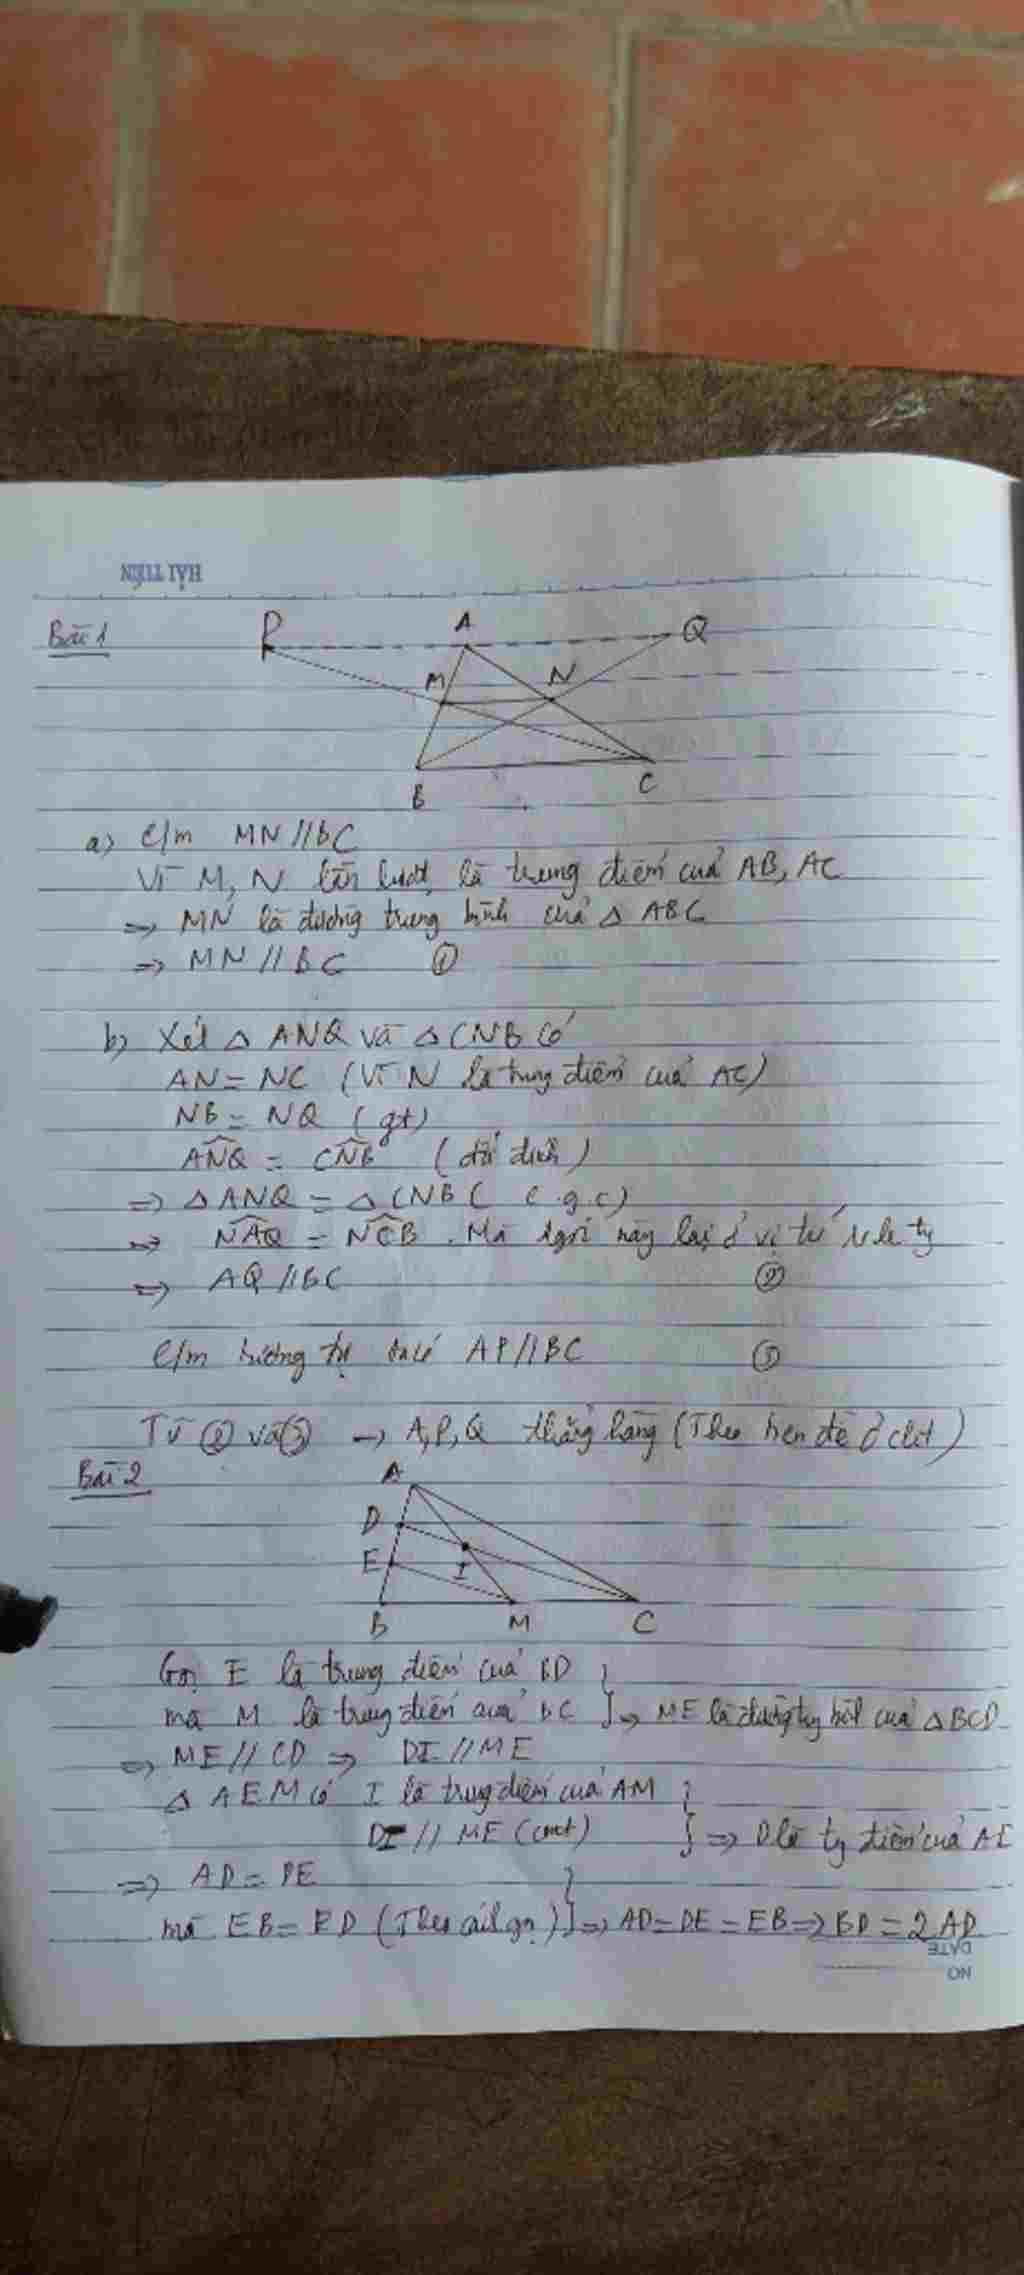 HẢI TIẾN
Bài 1
P A Q
M N
B C
a) C/m MN // BC
Vì M, N lần lượt là trung điểm của AB, AC
=> MN là đường trung bình của Δ ABC
=> MN // BC ①
b) Xét Δ ANQ và Δ CNB có
AN = NC (Vì N là trung điểm của AC)
NB = NQ (gt)
ANQ = CNB (đối đỉnh)
=> Δ ANQ = Δ CNB ( c.g.c)
=> NAQ = NCB . Mà 2 góc này lại ở vị trí
=> AQ // BC ②
C/m tương tự ta có AP // BC ③
Từ ② và ③ → A, P, Q thẳng hàng (Theo tiên đề Ơ clit)
Bài 2
A
D
E I
B M C
Gọi E là trung điểm của BD }
mà M là trung điểm của BC } => ME là đường tg bình của Δ BCD
=> ME // CD => DI // ME
Δ AEM có I là trung điểm của AM }
DI // ME (cmt) } => D là tg điểm của AE
=> AD = DE }
mà EB = ED (Theo gọi) } => AD = DE = EB => BD = 2 AD
DATE
NO